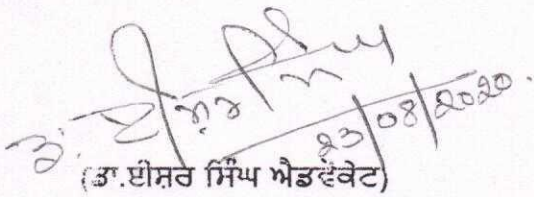 ਡਾ. ਈਸ਼ਰ ਸਿੰਘ
23/08/2020.
(ਡਾ.ਈਸ਼ਰ ਸਿੰਘ ਐਡਵੋਕੇਟ)